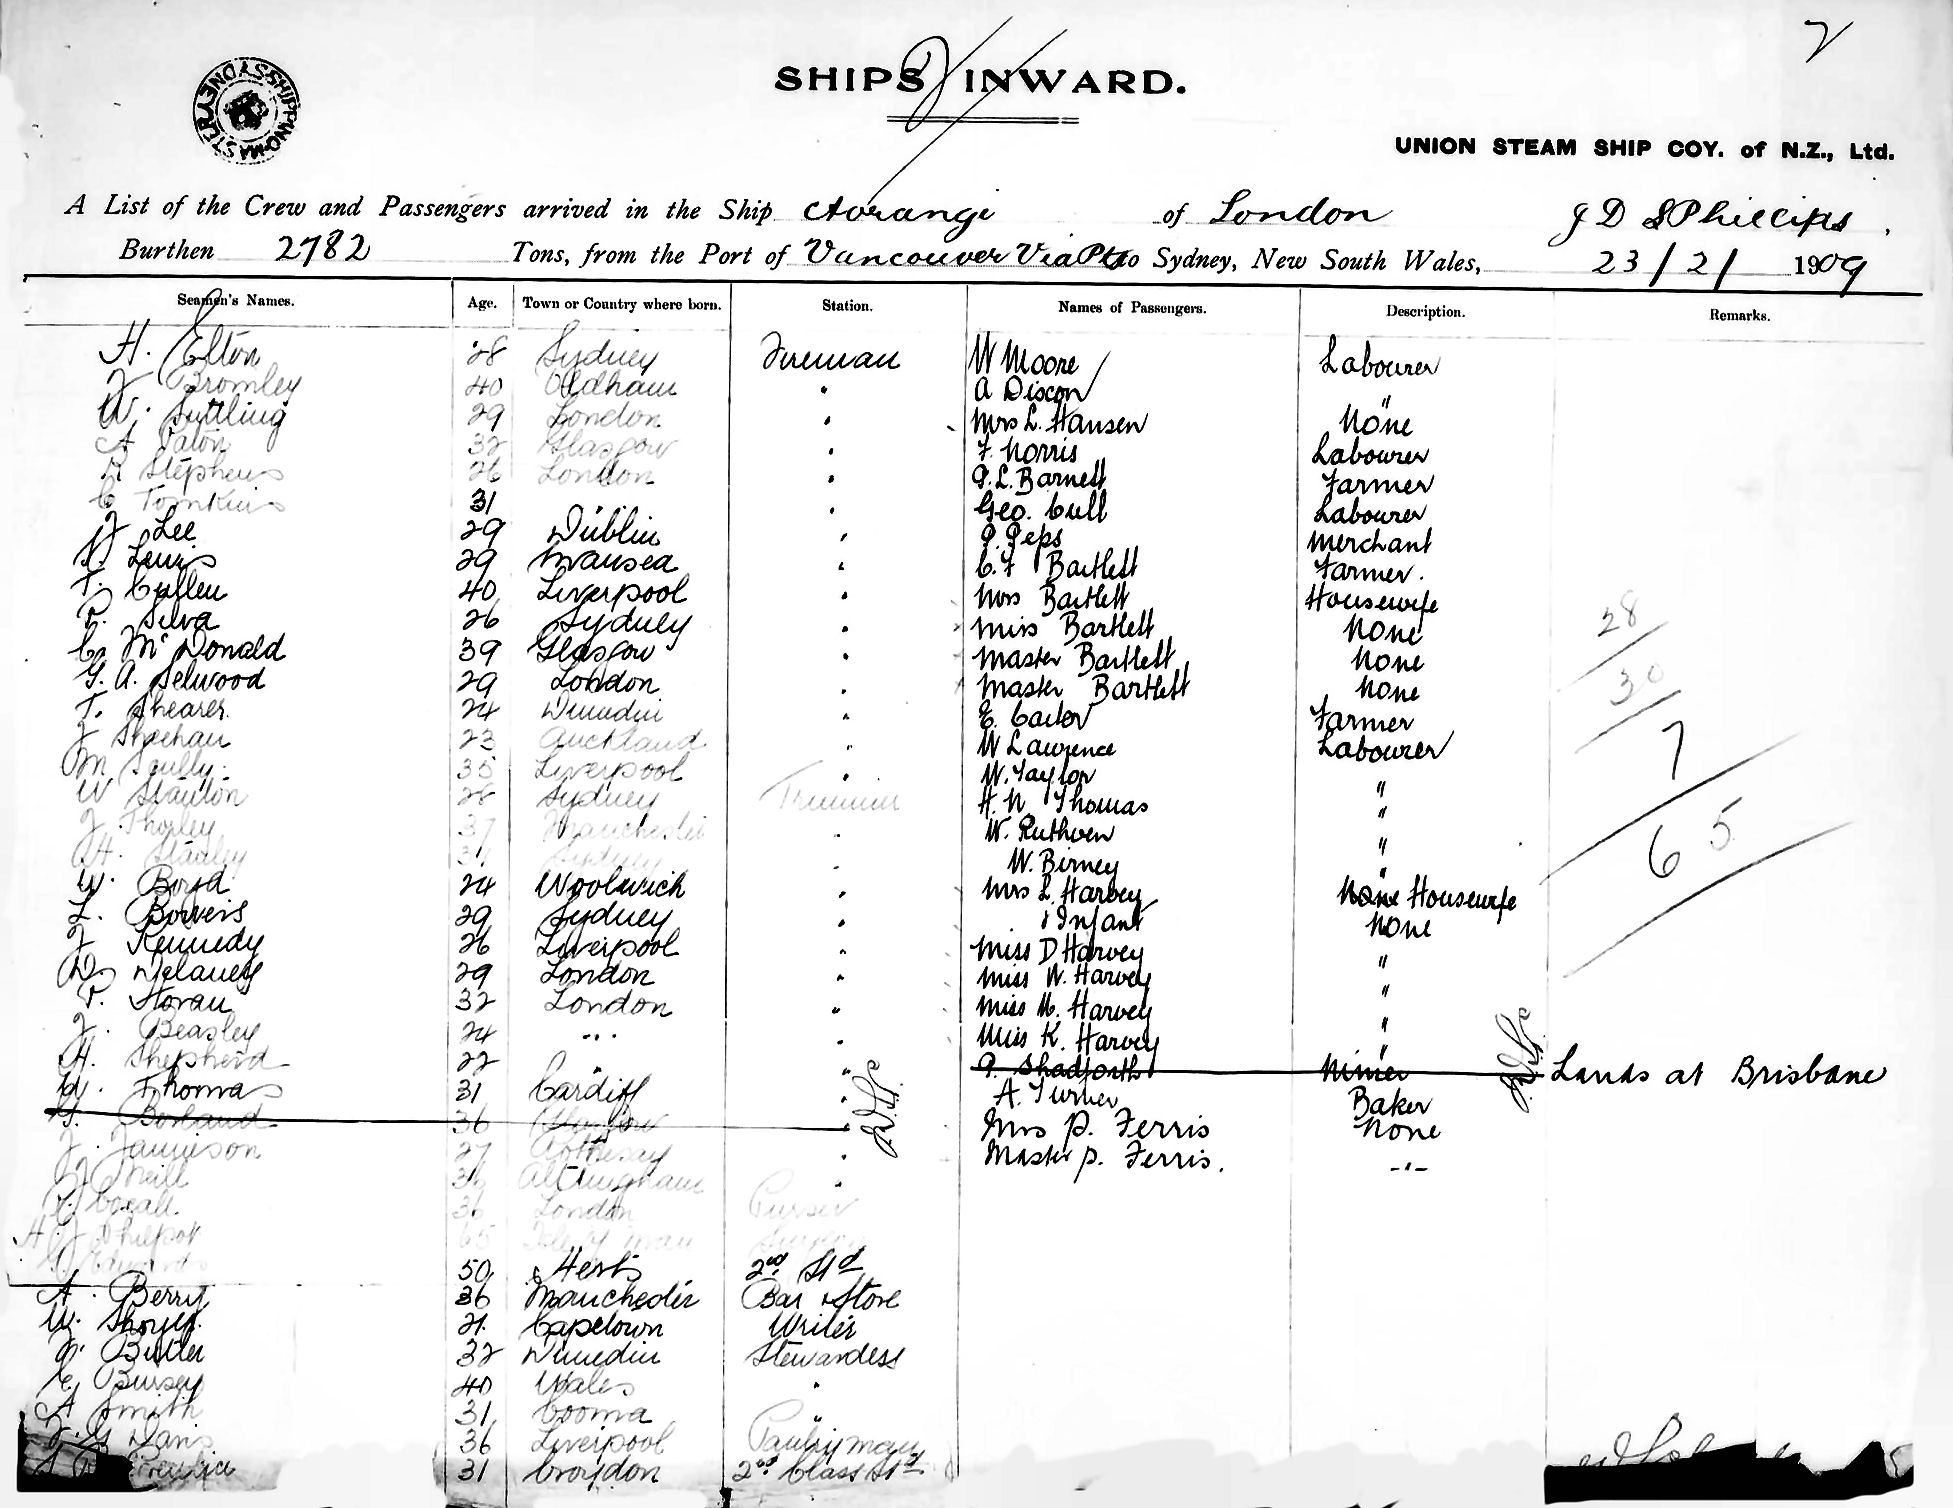 2
SHIPS INWARD.
SHIPPING MASTER SYDNEY
UNION STEAM SHIP COY. of N.Z., Ltd.
A List of the Crew and Passengers arrived in the Ship Aorangi of London J D S Phillips,
Burthen 2782 Tons, from the Port of Vancouver Via Pts to Sydney, New South Wales, 23/2/1909
Seamen's Names. Age. Town or Country where born. Station. Names of Passengers. Description. Remarks.
H. Elton 28 Sydney Fireman W Moore Labourer
J Bromley 40 Oldham " A Discon "
W. Suttling 29 London " Mrs L. Hansen None
A Paton 32 Glasgow " F. Norris Labourer
Stephens 26 London " P. L. Barnett Farmer
C Tomkins 31 " Geo. Cull Labourer
J Lee 29 Dublin " P. Peps Merchant
Lewis 29 Swansea " C. F Bartlett Farmer.
T. Cullen 40 Liverpool " Mrs Bartlett Housewife
Silva 26 Sydney " Miss Bartlett None
C. McDonald 39 Glasgow " Master Bartlett None
G. A. Selwood 29 London " Master Bartlett None
T. Shearer. 24 Dunedin " E. Farmer
J Sheehan 23 Auckland " W Lawrence Labourer
M Scully. 35 Liverpool " W. Taylor "
W Stanton 28 Sydney Trimmer H. N Thomas "
J. Thorley 37 Manchester " W. Ruthven "
H. Stanley Sydney " W. Birney "
W. Boyd 24 Woolwich " Mrs L. Harvey None Housewife
L. Bowers 29 Sydney " & Infant None
J Kennedy 26 Liverpool " Miss D Harvey "
D. Delaney 29 London " Miss W. Harvey "
P. Horan 32 London " Miss M. Harvey "
J. Beasley 24 " Miss K. Harvey "
H. Shepherd 22 " P. Shadforth Miner Lands at Brisbane
W. Thomas 31 Cardiff " A. Turner Baker
Borland 36 Glasgow " Mrs P. Ferris None
J. Jamieson 27 Rothesay " Master P. Ferris. -"-
J. Neill 36 Altringham "
Cocall 36 London Purser
H. J Philpot 65 Isle of Man Surgeon
Edwards 50 Herts 2nd Std
A. Berry 36 Manchester Bar & Store
W. 21 Capetown Writer
Butler 32 Dunedin Stewardess
E. Bursey 40 Wales "
A Smith 31 Cooma "
Davis 36 Liverpool Pantryman
31 Croydon 2nd Class Std
28
30
7
65